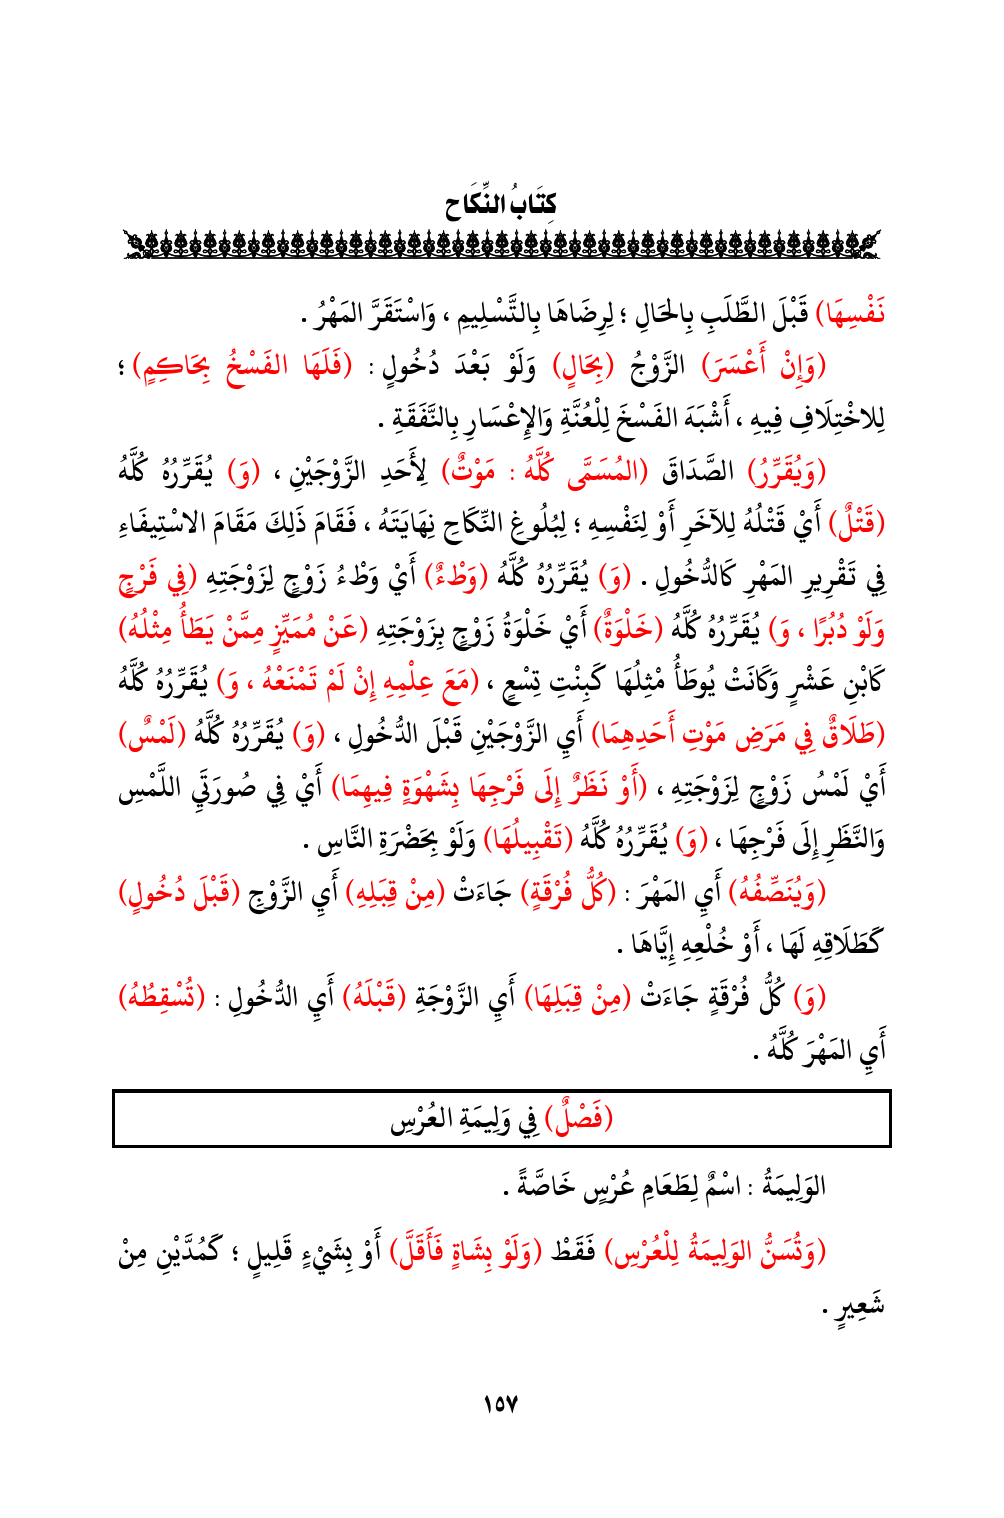 كِتَابُ النِّكَاح
نَفْسِهَا) قَبْلَ الطَّلَبِ بِالحَالِ ؛ لِرِضَاهَا بِالتَّسْلِيمِ ، وَاسْتَقَرَّ المَهْرُ .
(وَإِنْ أَعْسَرَ) الزَّوْجُ (بِحَالٍ) وَلَوْ بَعْدَ دُخُولٍ : (فَلَهَا الفَسْخُ بِحَاكِمٍ) ؛
لِلاخْتِلَافِ فِيهِ ، أَشْبَهَ الفَسْخَ لِلْعُنَّةِ وَالإِعْسَارِ بِالنَّفَقَةِ .
(وَيُقَرِّرُ) الصَّدَاقَ (المُسَمَّى كُلَّهُ : مَوْتٌ) لِأَحَدِ الزَّوْجَيْنِ ، (وَ) يُقَرِّرُهُ كُلَّهُ
(قَتْلٌ) أَيْ قَتْلُهُ لِلآخَرِ أَوْ لِنَفْسِهِ ؛ لِبُلُوغِ النِّكَاحِ نِهَايَتَهُ ، فَقَامَ ذَلِكَ مَقَامَ الاسْتِيفَاءِ
فِي تَقْرِيرِ المَهْرِ كَالدُّخُولِ . (وَ) يُقَرِّرُهُ كُلَّهُ (وَطْءٌ) أَيْ وَطْءُ زَوْجٍ لِزَوْجَتِهِ (فِي فَرْجٍ
وَلَوْ دُبُرًا ، وَ) يُقَرِّرُهُ كُلَّهُ (خَلْوَةٌ) أَيْ خَلْوَةُ زَوْجٍ بِزَوْجَتِهِ (عَنْ مُمَيِّزٍ مِمَّنْ يَطَأُ مِثْلُهُ)
كَابْنِ عَشْرٍ وَكَانَتْ يُوطَأُ مْثِلُهَا كَبِنْتِ تِسْعٍ ، (مَعَ عِلْمِهِ إِنْ لَمْ تَمْنَعْهُ ، وَ) يُقَرِّرُهُ كُلَّهُ
(طَلَاقٌ فِي مَرَضِ مَوْتِ أَحَدِهِمَا) أَيِ الزَّوْجَيْنِ قَبْلَ الدُّخُولِ ، (وَ) يُقَرِّرُهُ كُلَّهُ (لَمْسٌ)
أَيْ لَمْسُ زَوْجٍ لِزَوْجَتِهِ ، (أَوْ نَظَرٌ إِلَى فَرْجِهَا بِشَهْوَةٍ فِيهِمَا) أَيْ فِي صُورَتَيِ اللَّمْسِ
وَالنَّظَرِ إِلَى فَرْجِهَا ، (وَ) يُقَرِّرُهُ كُلَّهُ (تَقْبِيلُهَا) وَلَوْ بِحَضْرَةِ النَّاسِ .
(وَيُنَصِّفُهُ) أَيِ المَهْرَ : (كُلُّ فُرْقَةٍ) جَاءَتْ (مِنْ قِبَلِهِ) أَيِ الزَّوْجِ (قَبْلَ دُخُولٍ)
كَطَلَاقِهِ لَهَا ، أَوْ خُلْعِهِ إِيَّاهَا .
(وَ) كُلُّ فُرْقَةٍ جَاءَتْ (مِنْ قِبَلِهَا) أَيِ الزَّوْجَةِ (قَبْلَهُ) أَيِ الدُّخُولِ : (تُسْقِطُهُ)
أَيِ المَهْرَ كُلَّهُ .
(فَصْلٌ) فِي وَلِيمَةِ العُرْسِ
الوَلِيمَةُ : اسْمٌ لِطَعَامِ عُرْسٍ خَاصَّةً .
(وَتُسَنُّ الوَلِيمَةُ لِلْعُرْسِ) فَقَطْ (وَلَوْ بِشَاةٍ فَأَقَلَّ) أَوْ بِشَيْءٍ قَلِيلٍ ؛ كَمُدَّيْنِ مِنْ
شَعِيرٍ .
١٥٧